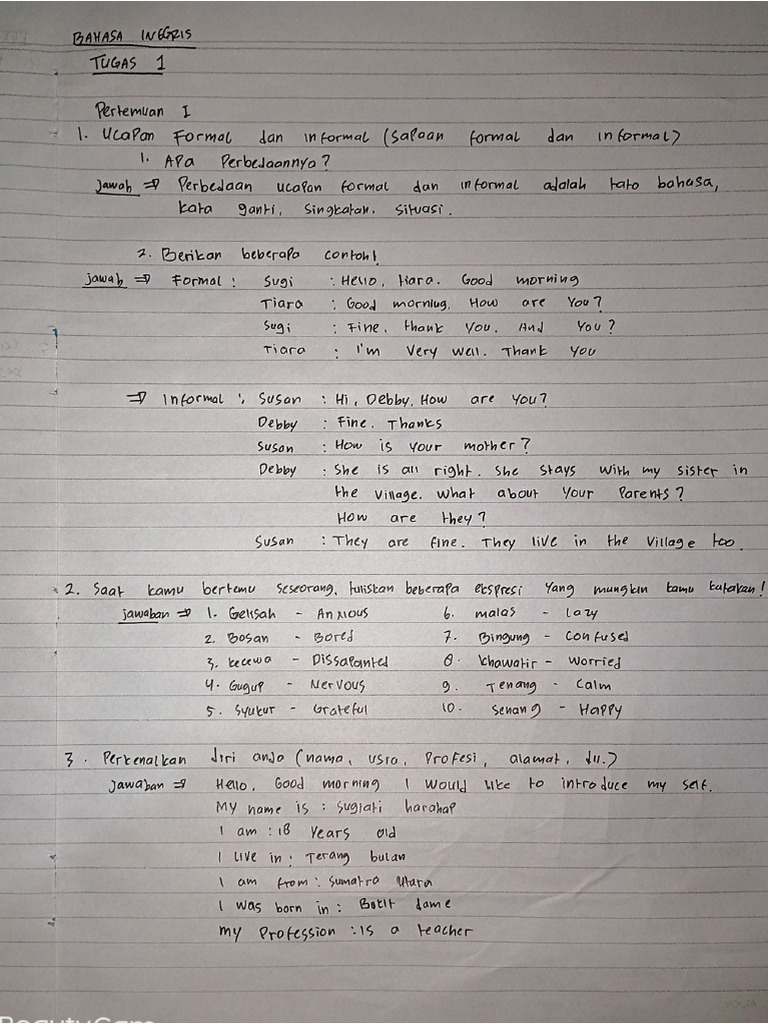 BAHASA INGGRIS
TUGAS 1
Pertemuan I
1. Ucapan Formal dan informal (sapaan formal dan informal)
1. Apa Perbedaannya?
jawab => Perbedaan ucapan formal dan informal adalah tata bahasa,
kata ganti, singkatan, situasi.
2. Berikan beberapa contoh!
jawab => Formal : Sugi : Hello, tiara. Good morning
Tiara : Good morning. How are you?
Sugi : Fine, thank you. And you?
Tiara : I'm very well. Thank you
=> Informal : Susan : Hi, Debby. How are you?
Debby : Fine. Thanks
Susan : How is your mother?
Debby : She is all right. She stays with my sister in
the village. what about your parents?
How are they?
Susan : They are fine. They live in the village too.
2. Saat kamu bertemu seseorang, tuliskan beberapa ekspresi yang mungkin kamu katakan!
jawaban => 1. Gelisah - Anxious 6. malas - lazy
2. Bosan - Bored 7. Bingung - Confused
3. kecewa - Dissapanted 8. khawatir - worried
4. Gugup - Nervous 9. Tenang - Calm
5. Syukur - Grateful 10. Senang - Happy
3. Perkenalkan diri anda (nama, usia, profesi, alamat, dll.)
jawaban => Hello, Good morning I would like to introduce my self.
My name is : sugiati harahap
I am : 18 years old
I live in : Terang bulan
I am from : Sumatra Utara
I was born in : Bukit dame
my Profession : is a teacher
BeautyCam